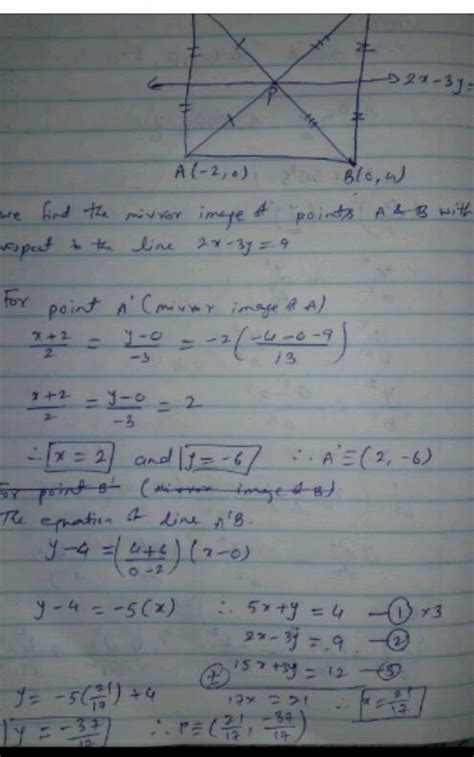 2x-3y=
P
A(-2,0)
B(0,4)
we find the mirror image of points A & B with
respect to the line 2x-3y=9
For point A' (mirror image of A)
x+2/2 = y-0/-3 = -2(-4-0-9/13)
x+2/2 = y-0/-3 = 2
∴ x=2 and y=-6 ∴ A'≡(2,-6)
For point B' (mirror image of B)
The equation of line A'B.
y-4=(4+6/0-2)(x-0)
y-4=-5(x) ∴ 5x+y=4 —① ×3
2x-3y=9 —②
⊕ 15x+3y=12 —③
y=-5(21/17)+4 17x=21 ∴ x=21/17
y=-37/17 ∴ P≡(21/17, -37/17)